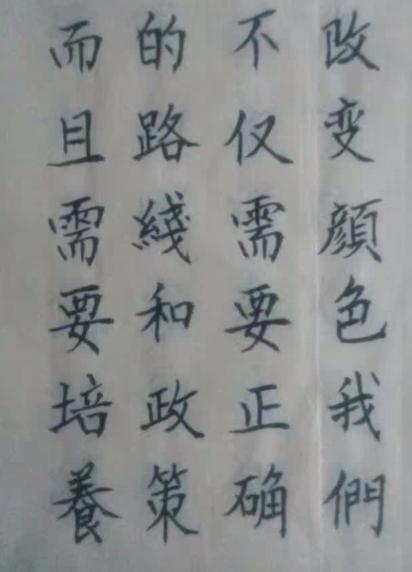 改变顔色我們
不仅需要正确
的路綫和政策
而且需要培養